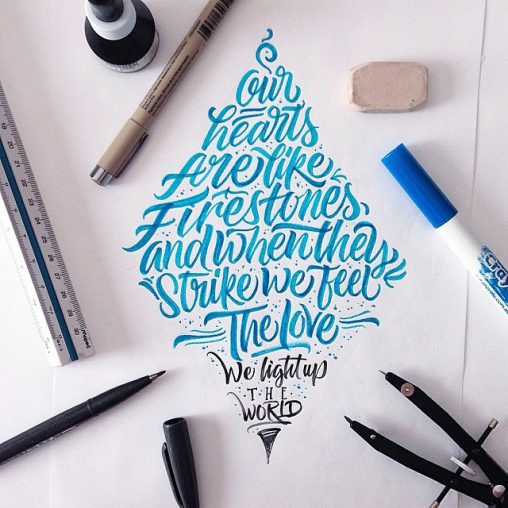 Our
hearts
Are like
Firestones,
and when they
Strike we feel
The Love
We light up
THE
WORLD
Cray